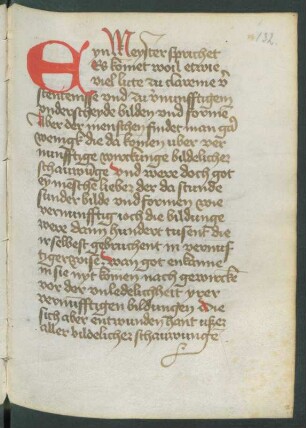 132.
Eyn Meyster sprachet
Es komet woil etwie
viel lute zu clareme v̄
stentenisse vnd zu vnunfftigem
vnderscheyde bilden vnd forme
Aber der menschen findet man gar
wenigk die da komen uber ver
nunfftige wurckunge bildelicher
schauwūge vnd were doch got
eyn mesche lieber der da stunde
sunder bilde vnd formen wie
vernunfftig ioch die bildunge
were dann hundert tusent die
irselbest gebruchent in vernuf
tiger wise wan got enkanne
in sie nyt komen nach gewurck
vor der unledelicheit yrer
vernunfftigen bildungen die
sich aber entwunden hant usser
aller bildelicher schauwunge